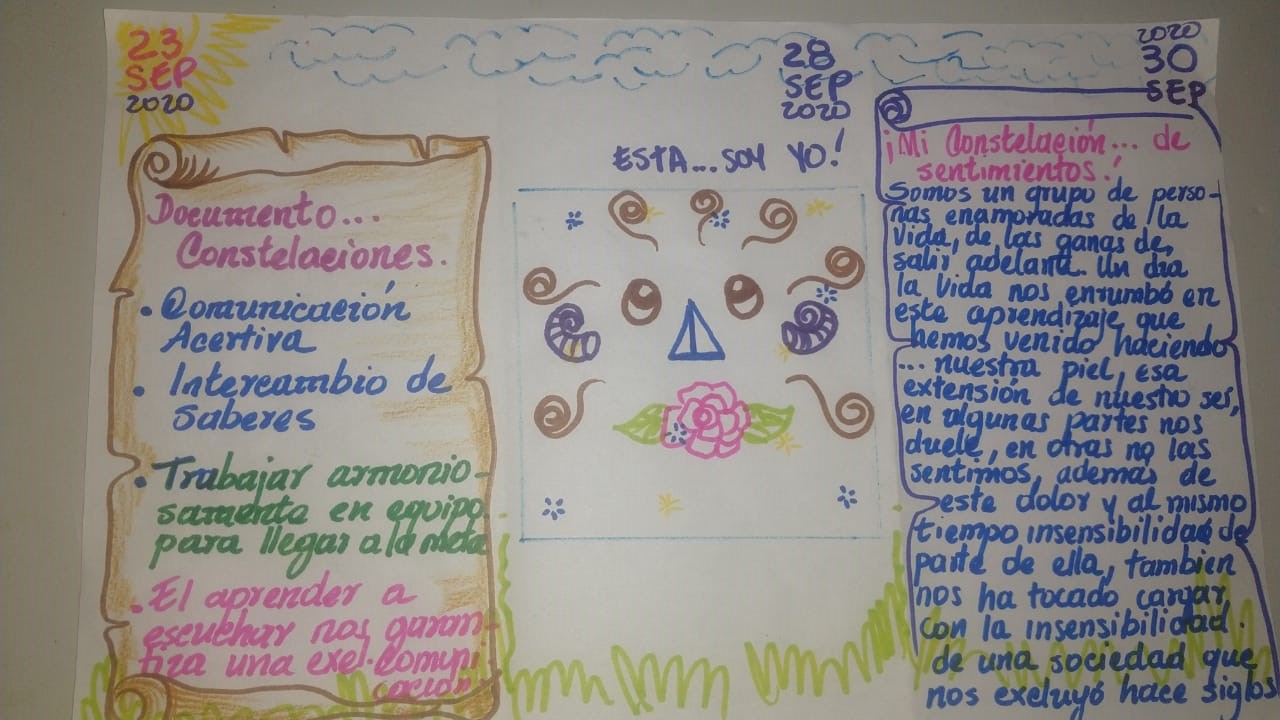 23
SEP
2020
Documento...
Constelaciones.
• Comunicación
Acertiva
• Intercambio de
saberes
• Trabajar armonio-
samente en equipo
para llegar a la meta
• El aprender a
escuchar nos garan-
tiza una exel. comuni
cación
28
SEP
2020
ESTA... SOY YO!
2020
30
SEP
¡Mi Constelación... de
sentimientos!
Somos un grupo de perso-
nas enamoradas de la
vida, de las ganas de,
salir adelant. Un dia
la vida nos enrumbó en
este aprendizaje que
hemos venido haciendo
... nuestra piel, esa
extensión de nuestro ser,
en algunas partes nos
duele, en otras no las
sentimos, ademas de
este dolor y al mismo
tiempo insensibilidad de
parte de ella, tambien
nos ha tocado cargar
con la insensibilidad.
de una sociedad que
nos exeluyó hace siglos